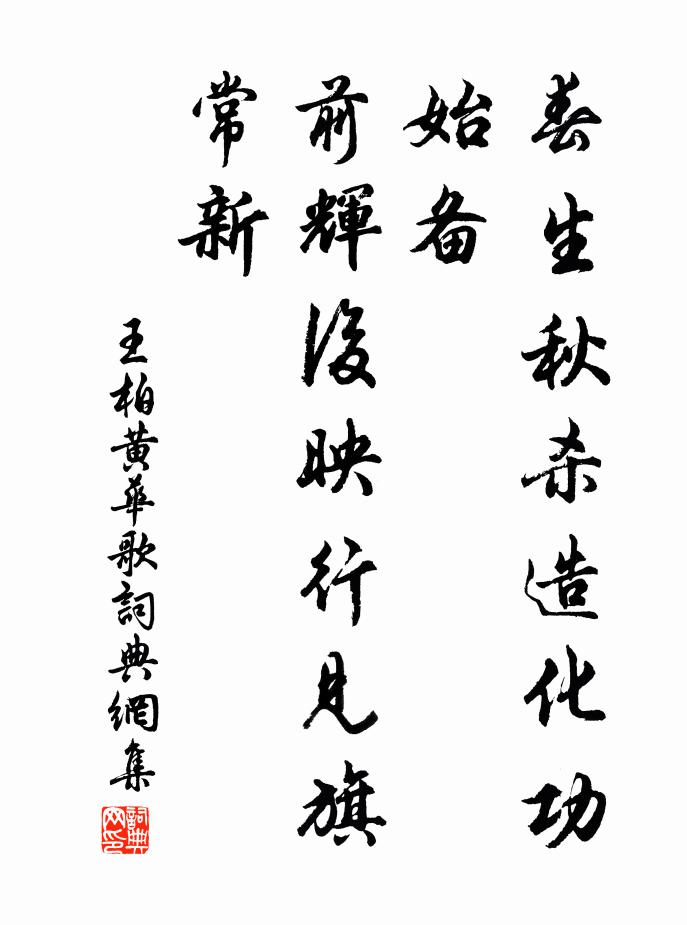 春生秋杀造化功
始备
前輝後映行見旗
常新
王柏黄華歌詞典網集
詞典
网印